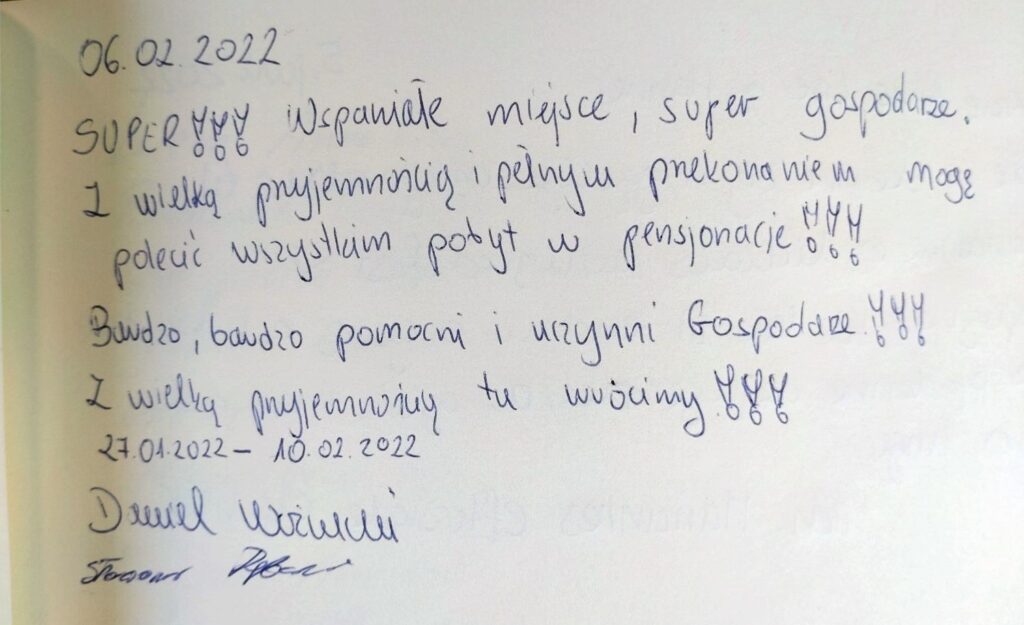 06.02.2022
SUPER!!! Wspaniałe miejsce, super gospodarze.
Z wielką przyjemnością i pełnym przekonaniem mogę
polecić wszystkim pobyt w pensjonacie!!!
Bardzo, bardzo pomocni i uczynni Gospodarze!!!
Z wielką przyjemnością tu wrócimy!!!
27.01.2022 – 10.02.2022
Daniel